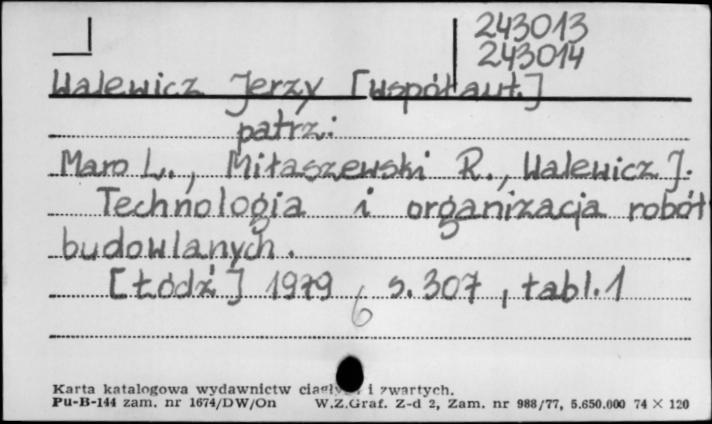 243013
243014
Walewicz Jerzy [współaut.]
patrz:
Maro L., Miłaszewski R., Walewicz J.
Technologia i organizacja robót
budowlanych.
[Łódź] 1979 s. 307, tabl. 1
6
Karta katalogowa wydawnictw ciągłych i zwartych.
Pu-B-144 zam. nr 1674/DW/On W.Z.Graf. Z-d 2, Zam. nr 988/77, 5.650.000 74 × 120